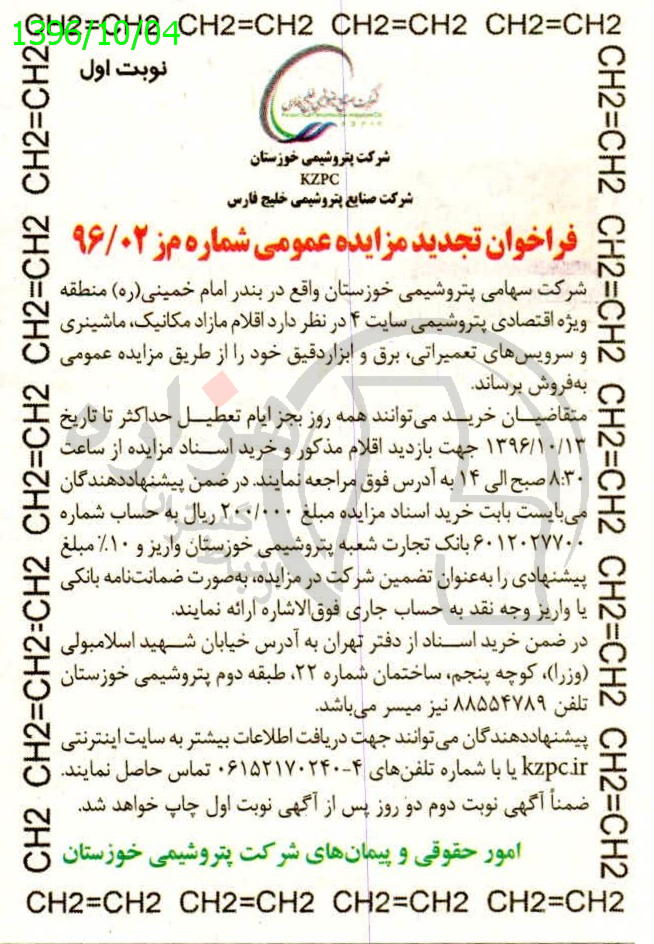 1396/10/04
CH2=CH2 CH2=CH2 CH2=CH2 CH2=CH2
نوبت اول
شرکت پتروشیمی خوزستان
KZPC
شرکت صنایع پتروشیمی خلیج فارس
فراخوان تجدید مزایده عمومی شماره مز ۹۶/۰۲
شرکت سهامی پتروشیمی خوزستان واقع در بندر امام خمینی(ره) منطقه
ویژه اقتصادی پتروشیمی سایت ۴ در نظر دارد اقلام مازاد مکانیک، ماشینری
و سرویس‌های تعمیراتی، برق و ابزاردقیق خود را از طریق مزایده عمومی
به‌فروش برساند.
متقاضیان خرید می‌توانند همه روز بجز ایام تعطیل حداکثر تا تاریخ
۱۳۹۶/۱۰/۱۳ جهت بازدید اقلام مذکور و خرید اسناد مزایده از ساعت
۸:۳۰ صبح الی ۱۴ به آدرس فوق مراجعه نمایند. در ضمن پیشنهاددهندگان
می‌بایست بابت خرید اسناد مزایده مبلغ ۲۰۰/۰۰۰ ریال به حساب شماره
۶۰۱۲۰۲۷۷۰۰ بانک تجارت شعبه پتروشیمی خوزستان واریز و ۱۰٪ مبلغ
پیشنهادی را به‌عنوان تضمین شرکت در مزایده، به‌صورت ضمانت‌نامه بانکی
یا واریز وجه نقد به حساب جاری فوق‌الاشاره ارائه نمایند.
در ضمن خرید اسناد از دفتر تهران به آدرس خیابان شهید اسلامبولی
(وزرا)، کوچه پنجم، ساختمان شماره ۲۲، طبقه دوم پتروشیمی خوزستان
تلفن ۸۸۵۵۴۷۸۹ نیز میسر می‌باشد.
پیشنهاددهندگان می‌توانند جهت دریافت اطلاعات بیشتر به سایت اینترنتی
kzpc.ir یا با شماره تلفن‌های ۴-۰۶۱۵۲۱۷۰۲۴۰ تماس حاصل نمایند.
ضمناً آگهی نوبت دوم دو روز پس از آگهی نوبت اول چاپ خواهد شد.
امور حقوقی و پیمان‌های شرکت پتروشیمی خوزستان
CH2=CH2 CH2=CH2 CH2=CH2 CH2=CH2
CH2=CH2 CH2=CH2 CH2=CH2 CH2=CH2 CH2
CH2=CH2 CH2=CH2 CH2=CH2 CH2=CH2 CH2=CH2